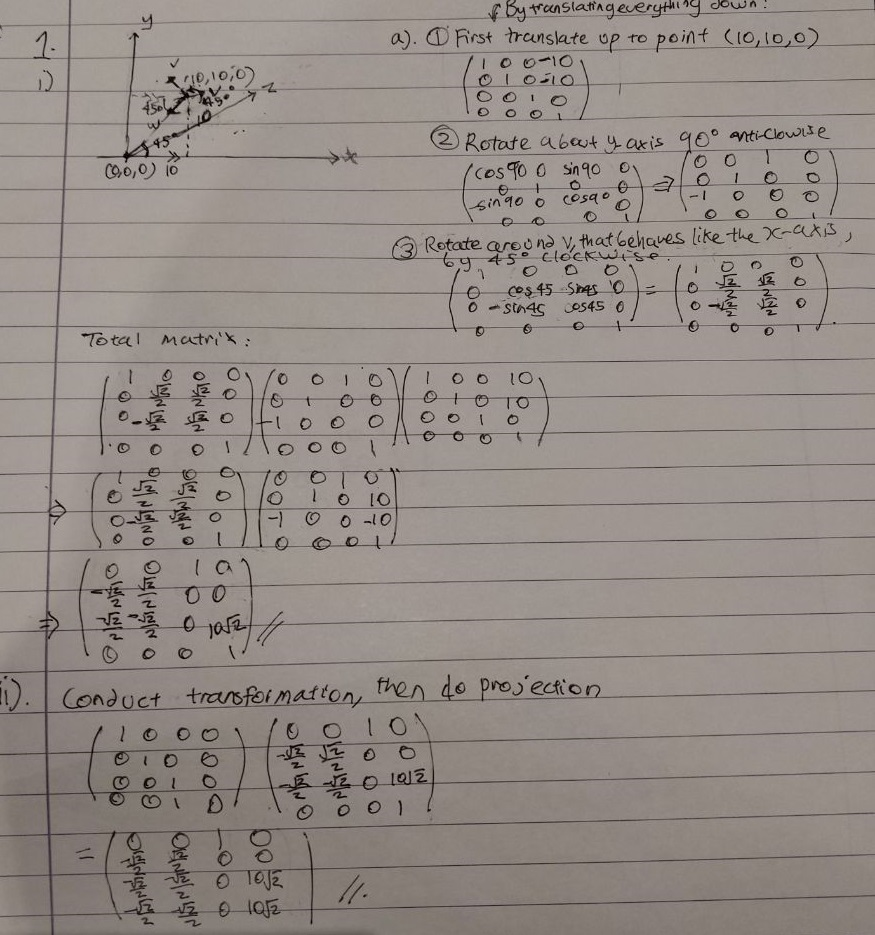 By translating everything down:
1.
a). ① First translate up to point (10,10,0)
i)
y
v
(10,10,0)
z
45°
45°
w
10
45°
x
(0,0,0) 10
1 0 0 -10
0 1 0 -10
0 0 1 0
0 0 0 1
② Rotate about y axis 90° anti-clowise
cos90 0 sin90 0
0 1 0 0
-sin90 0 cos90 0
0 0 0 1
⇒
0 0 1 0
0 1 0 0
-1 0 0 0
0 0 0 1
③ Rotate around v, that behaves like the x-axis,
by 45° clockwise.
1 0 0 0
0 cos45 sin45 0
0 -sin45 cos45 0
0 0 0 1
=
1 0 0 0
0 √2/2 √2/2 0
0 -√2/2 √2/2 0
0 0 0 1
Total matrix:
1 0 0 0
0 √2/2 √2/2 0
0 -√2/2 √2/2 0
0 0 0 1
0 0 1 0
0 1 0 0
-1 0 0 0
0 0 0 1
1 0 0 10
0 1 0 10
0 0 1 0
0 0 0 1
⇒
1 0 0 0
0 √2/2 √2/2 0
0 -√2/2 √2/2 0
0 0 0 1
0 0 1 0
0 1 0 10
-1 0 0 -10
0 0 0 1
⇒
0 0 1 0
-√2/2 √2/2 0 0
-√2/2 -√2/2 0 10√2
0 0 0 1 //
ii). Conduct transformation, then do projection
1 0 0 0
0 1 0 0
0 0 1 0
0 0 1 0
0 0 1 0
-√2/2 √2/2 0 0
-√2/2 -√2/2 0 10√2
0 0 0 1
=
0 0 1 0
-√2/2 √2/2 0 0
-√2/2 -√2/2 0 10√2
-√2/2 -√2/2 0 10√2 //.